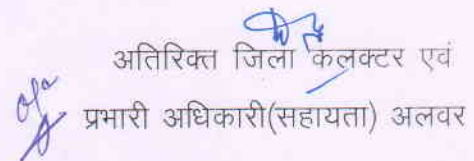 अतिरिक्त जिला कलक्टर एवं
प्रभारी अधिकारी(सहायता) अलवर